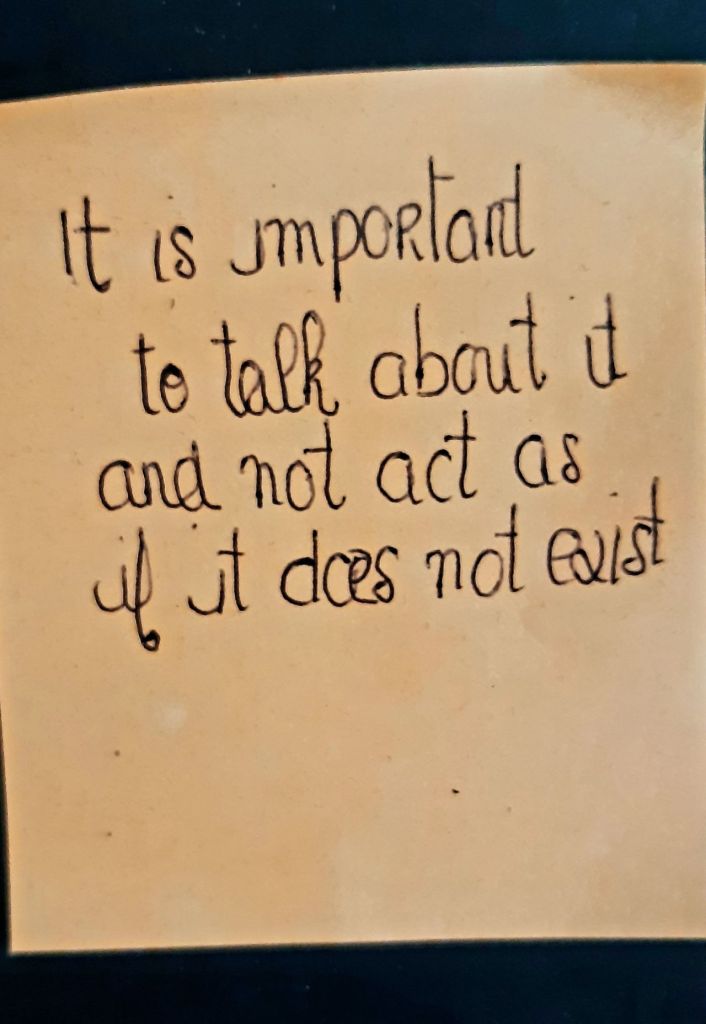 It is important
to talk about it
and not act as
if it does not exist